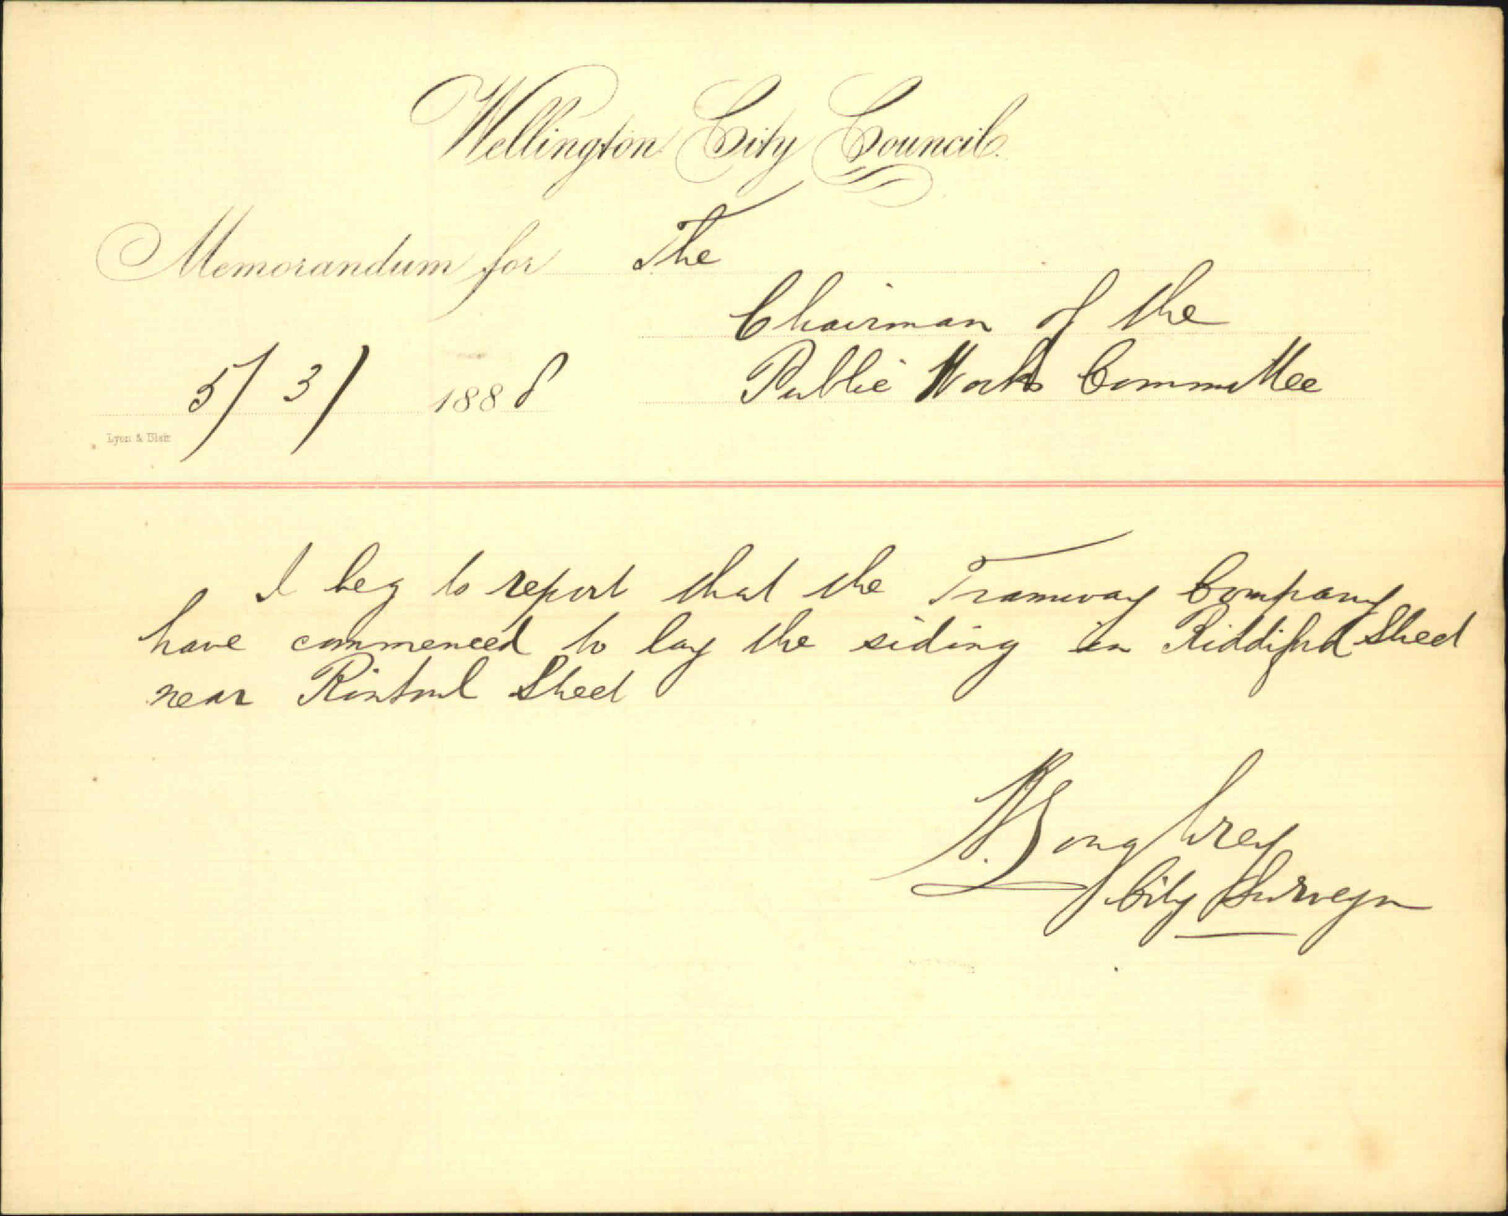 Wellington City Council.
Memorandum for The
Chairman of the
5/3/ 1888 Public Works Committee
Lyon & Blair
I beg to report that the Tramway Company
have commenced to lay the siding in Riddiford Street
near Rintoul Street
City Surveyor